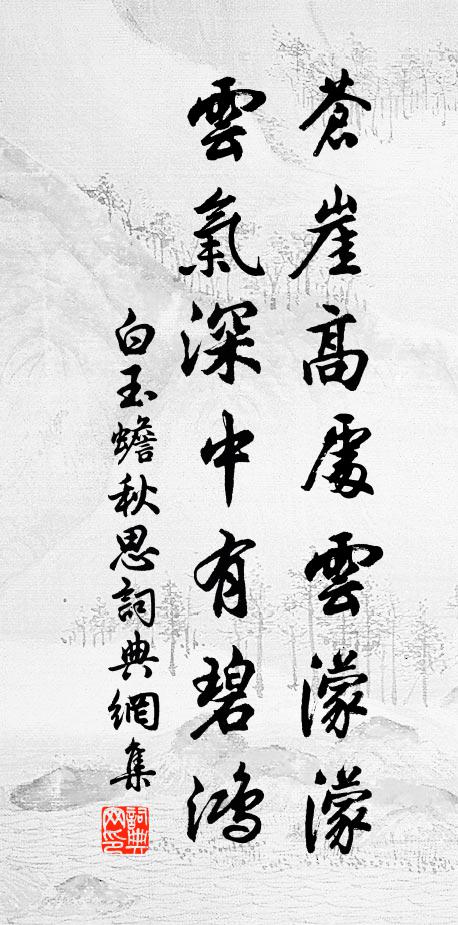 蒼崖高處雲濛濛
雲氣深中有碧鴻
白玉蟾秋思詞典網集
詞典網印